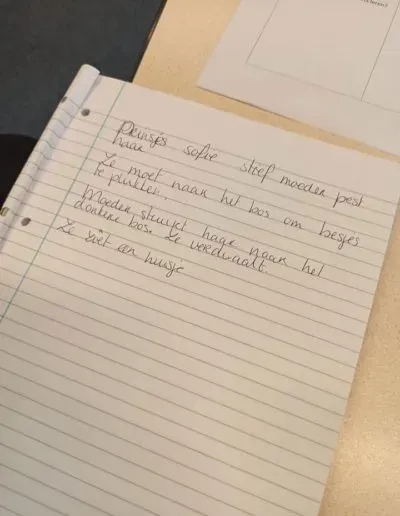 Prinsjes sofie stief moeder pest
haar
Ze moet naar het bos om besjes
te plukken.
Moeder stuurt haar naar het
donkere bos. Ze verdwaalt.
Ze ziet een huisje